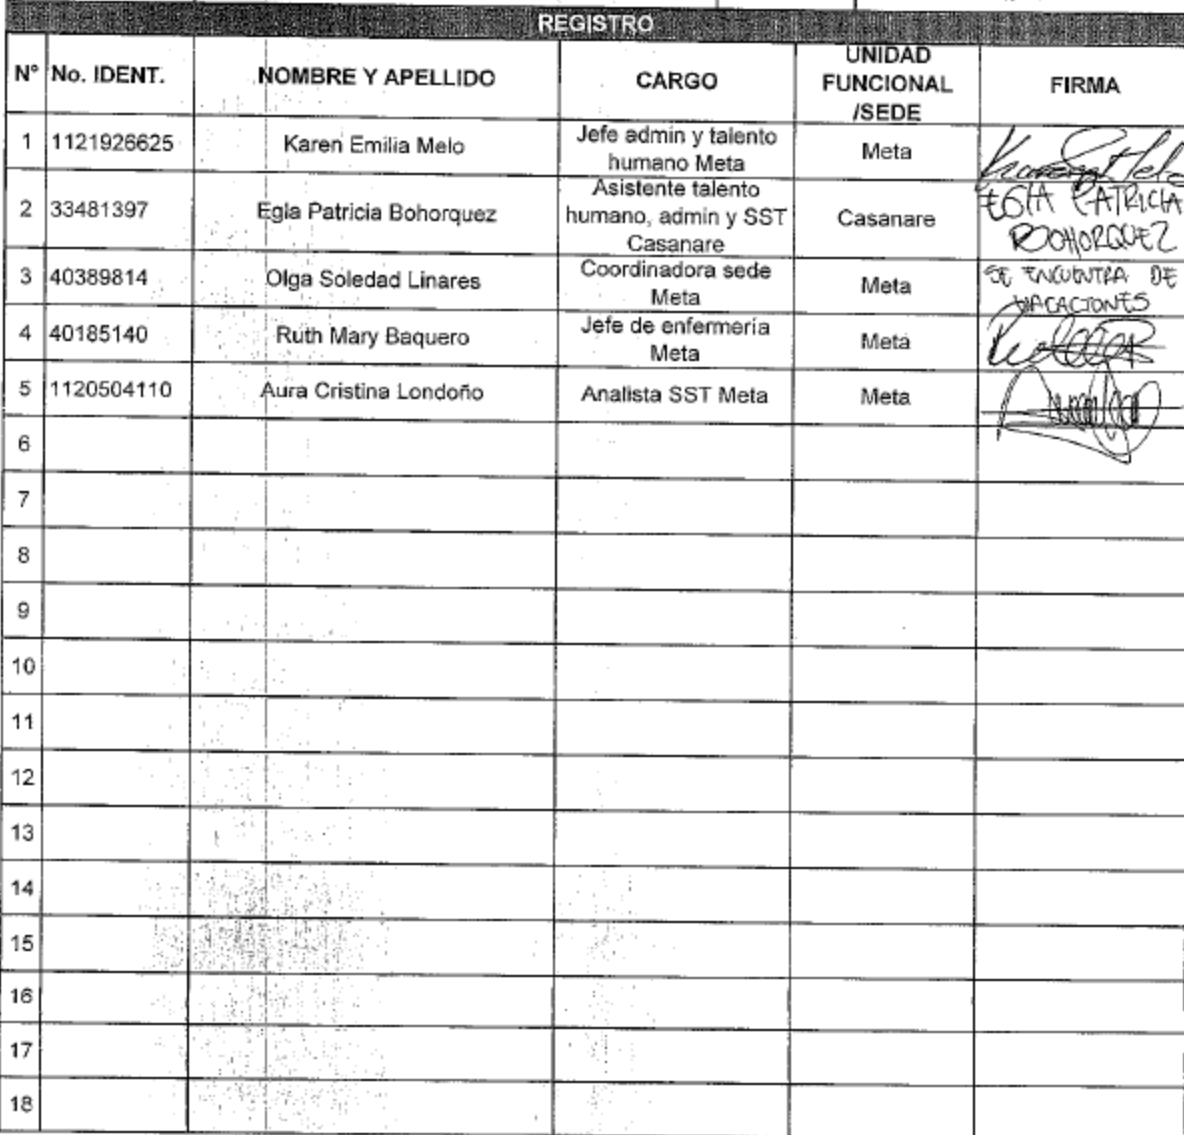 REGISTRO
N° No. IDENT. NOMBRE Y APELLIDO CARGO UNIDAD FUNCIONAL /SEDE FIRMA
1 1121926625 Karen Emilia Melo Jefe admin y talento humano Meta Meta
2 33481397 Egla Patricia Bohorquez Asistente talento humano, admin y SST Casanare Casanare EGlA PATRICIA BOHORQUEZ
3 40389814 Olga Soledad Linares Coordinadora sede Meta Meta SE ENCUENTRA DE VACACIONES
4 40185140 Ruth Mary Baquero Jefe de enfermería Meta Meta
5 1120504110 Aura Cristina Londoño Analista SST Meta Meta
6
7
8
9
10
11
12
13
14
15
16
17
18